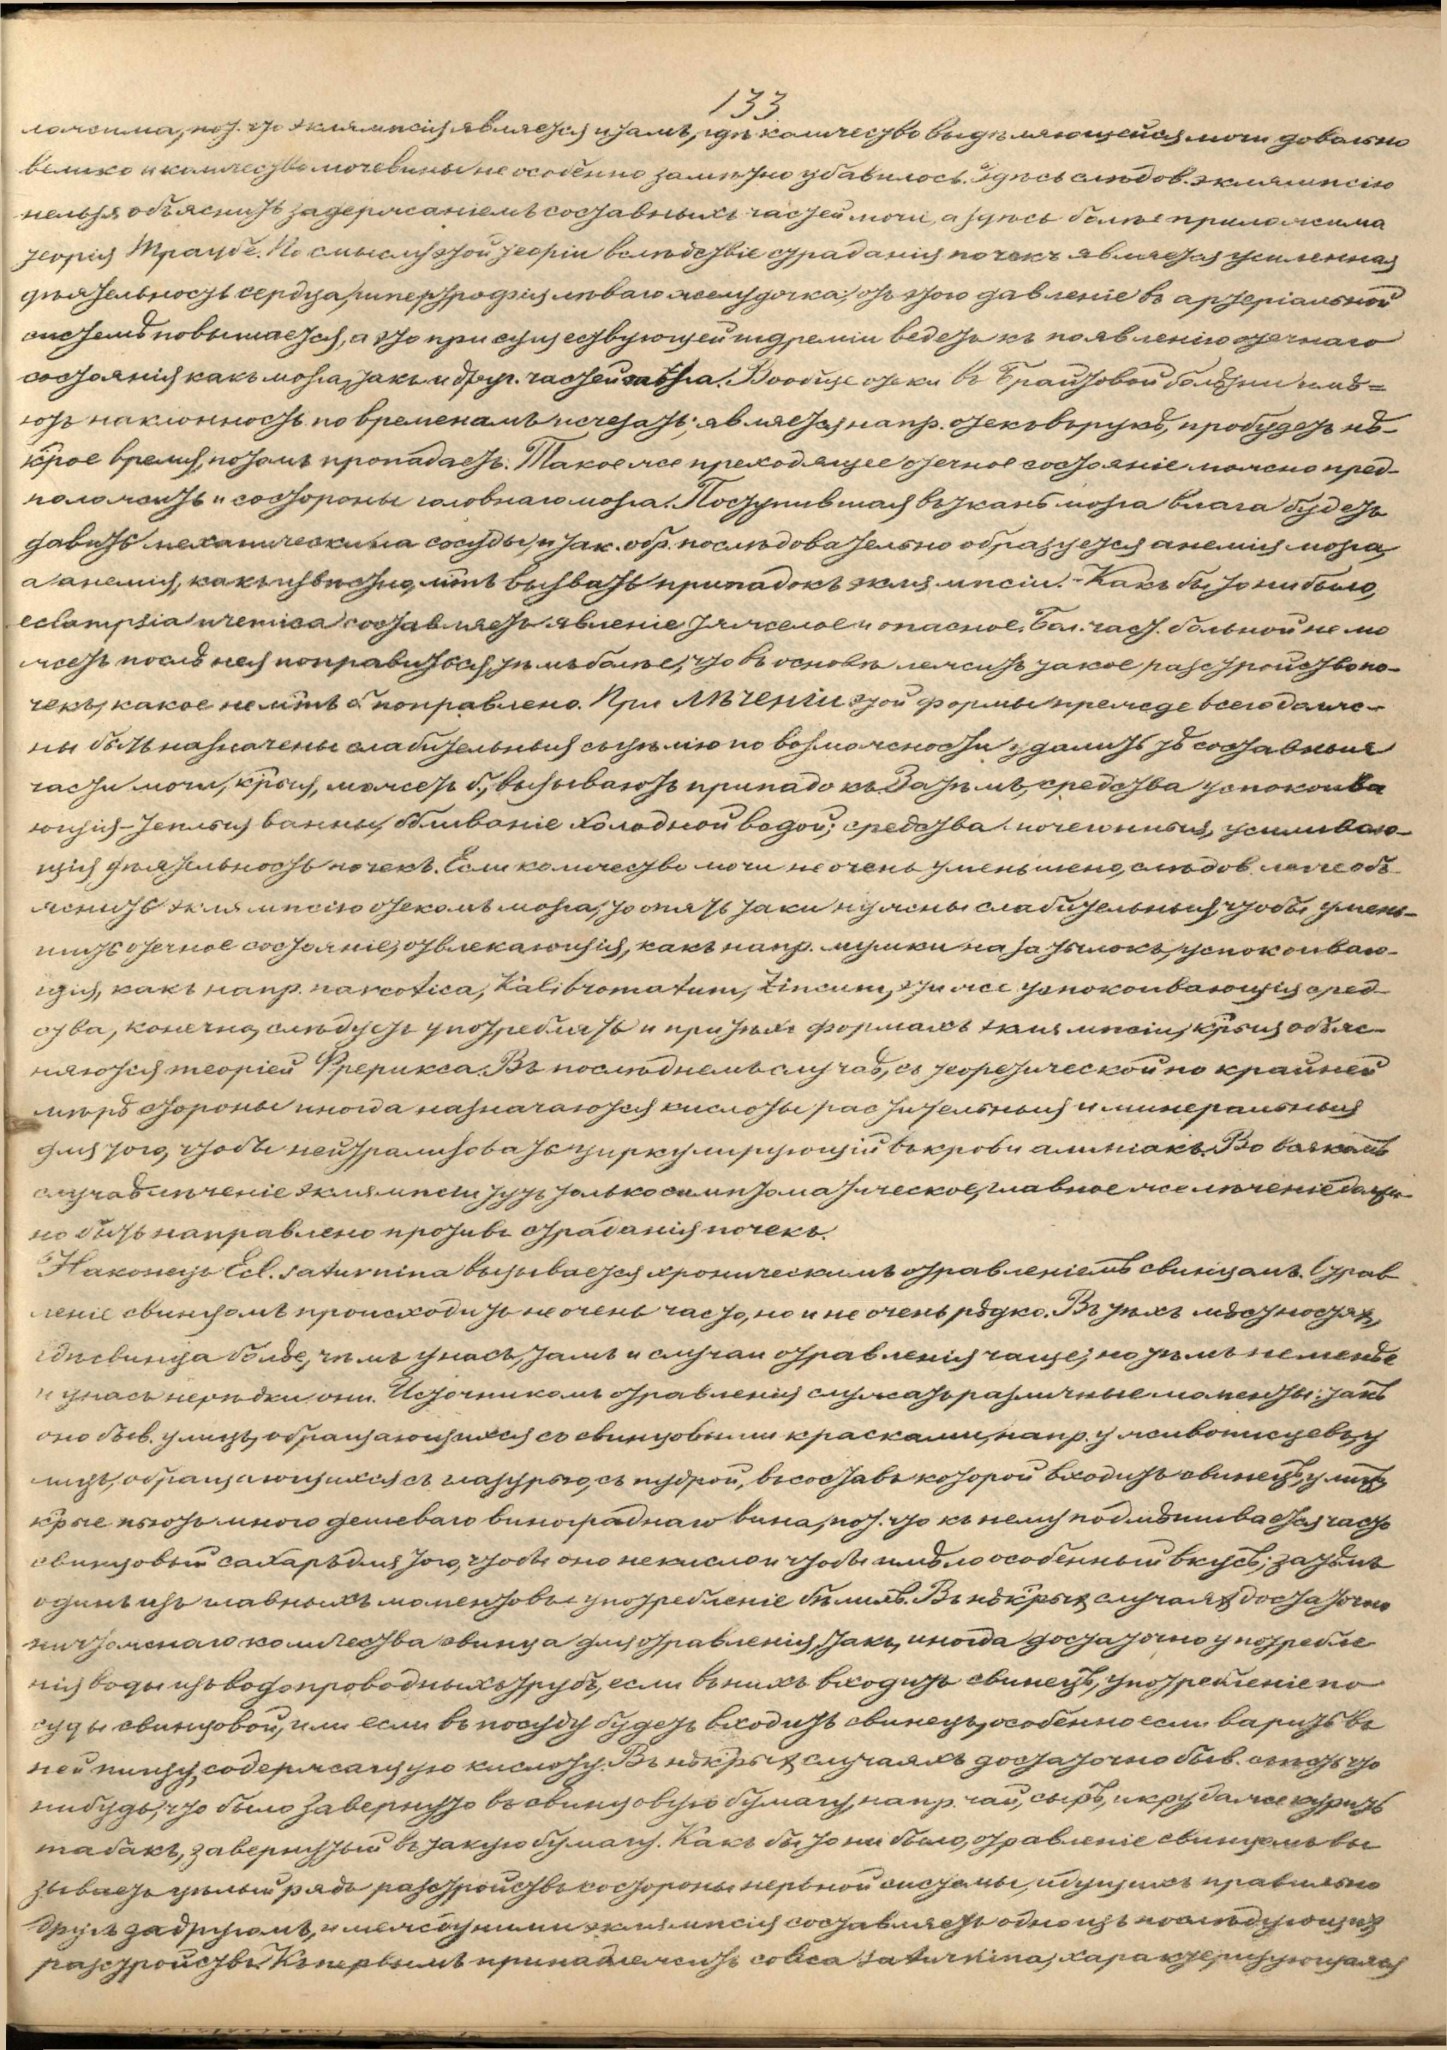 133
ложима, пот. что эклямпсія является и тамъ, гдѣ количество выдѣляющейся мочи довольно
велико и количество мочевины не особенно замѣтно убавилось. Здѣсь слѣдов. эклямпсію
нельзя объяснить задержаніемъ составныхъ частей мочи, а здѣсь болѣе приложима
теорія Траубе. По смыслу этой теоріи вслѣдствіе страданія почекъ является усиленная
дѣятельность сердца, гипертрофія лѣваго желудочка; отъ этого давленіе въ артеріальной
системѣ повышается, а это при существующей гидреміи ведетъ къ появленію отечнаго
состоянія какъ мозга, такъ и друг. частей тѣла. Вообще отеки въ Брайтовой болѣзни имѣ=
ютъ наклонность по временамъ исчезать; является напр. отекъ въ рукѣ, пробудетъ нѣ-
крое время, потомъ пропадаетъ. Такое же преходящее отечное состояніе можно пред-
положить и со стороны головнаго мозга. Поступившая въ ткань мозга влага будетъ
давить механически на сосуды, и так. обр. послѣдовательно образуется анемія мозга,
а анемія, какъ извѣстно, мѣтъ вызвать припадокъ эклямпсіи. - Какъ бы то ни было,
eclampsia uremica составляетъ явленіе тяжелое и опасное. Бол. част. больной не мо
жетъ послѣ нея поправиться, тѣмъ болѣе, что въ основѣ лежитъ такое разстройство по-
чекъ, какое не мѣтъ б. поправлено. При лѣченіи этой формы прежде всего долж-
ны быть назначены слабительныя съ цѣлію по возможности удалить тѣ составныя
части мочи, крыя, можетъ б., вызываютъ припадокъ. Затѣмъ, средства успокоива
ющія - теплыя ванны, обливаніе холодной водой; средства мочегонныя, усиливаю-
щія дѣятельность почекъ. Если количество мочи не очень уменьшено, слѣдов. легче объ-
яснить эклямпсію отекомъ мозга, то опять таки нужны слабительныя, чтобы умень-
шить отечное состояніе, отвлекающія, какъ напр. мушки на затылокъ, успокоиваю-
щія, какъ напр. narcotica, Kali bromatum, Zincum, эти же успокоивающія сред-
ства, конечно, слѣдуетъ употреблять и при тѣхъ формахъ эклямпсіи, крыя объяс-
няются теоріей Фрерикса. Въ послѣднемъ случаѣ, съ теоретической по крайней
мѣрѣ стороны иногда назначаются кислоты растительныя и минеральныя
для того, чтобы нейтрализовать циркулирующій въ крови амміакъ. Во всякомъ
случаѣ лѣченіе эклямпсіи тутъ только симптоматическое, главное же лѣченіе долж-
но быть направлено противъ страданія почекъ.
Наконецъ Ecl. saturnina вызывается хроническимъ отравленіемъ свинцомъ. Отрав
леніе свинцомъ происходитъ не очень часто, но и не очень рѣдко. Въ тѣхъ мѣстностях,
гдѣ свинца болѣе, чѣмъ у насъ, тамъ и случаи отравленія чаще; но тѣмъ не менѣе
и у насъ нерѣдки они. Источникомъ отравленія служатъ различные моменты: такъ
оно быв. у лицъ, обращающихся со свинцовыми красками, напр. у живописцевъ, у
лицъ, обращающихся съ глазурью, съ пудрой, въ составъ которой входитъ свинецъ, у лицъ,
крые пьютъ много дешеваго винограднаго вина, пот. что къ нему подмѣшивается часто
свинцовый сахаръ для того, чтобы оно не кисло и чтобы имѣло особенный вкусъ; затѣмъ
одинъ изъ главныхъ моментовъ употребленіе бѣлилъ. Въ нѣкрых случаях достаточно
ничтожнаго количества свинца для отравленія, такъ, иногда достаточно употребле
нія воды изъ водопроводныхъ трубъ, если въ нихъ входитъ свинецъ, употребленіе по
суды свинцовой, или если въ посуду будетъ входить свинецъ, особенно если варить въ
ней пищу, содержащую кислоту. Въ нѣкрых случаяхъ достаточно быв. съѣсть что
нибудь, что было завернуто въ свинцовую бумагу, напр. чай, сыръ, икру, даже курить
табакъ, завернутый въ такую бумагу. Какъ бы то ни было, отравленіе свинцомъ вы
зываетъ цѣлый рядъ разстройствъ со стороны нервной системы, идущихъ правильно
другъ за другомъ, и между ними эклямпсія составляетъ одно изъ послѣдующих
разстройствъ. Къ первымъ принадлежитъ colica saturnina, характеризующаяся